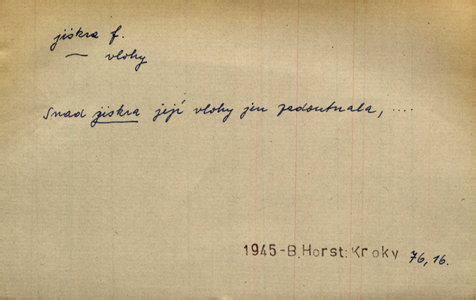 jiskra f.
— vlohy
Snad jiskra její vlohy jen zadoutnala, ....
1945-B.Horst: Kroky 76,16.